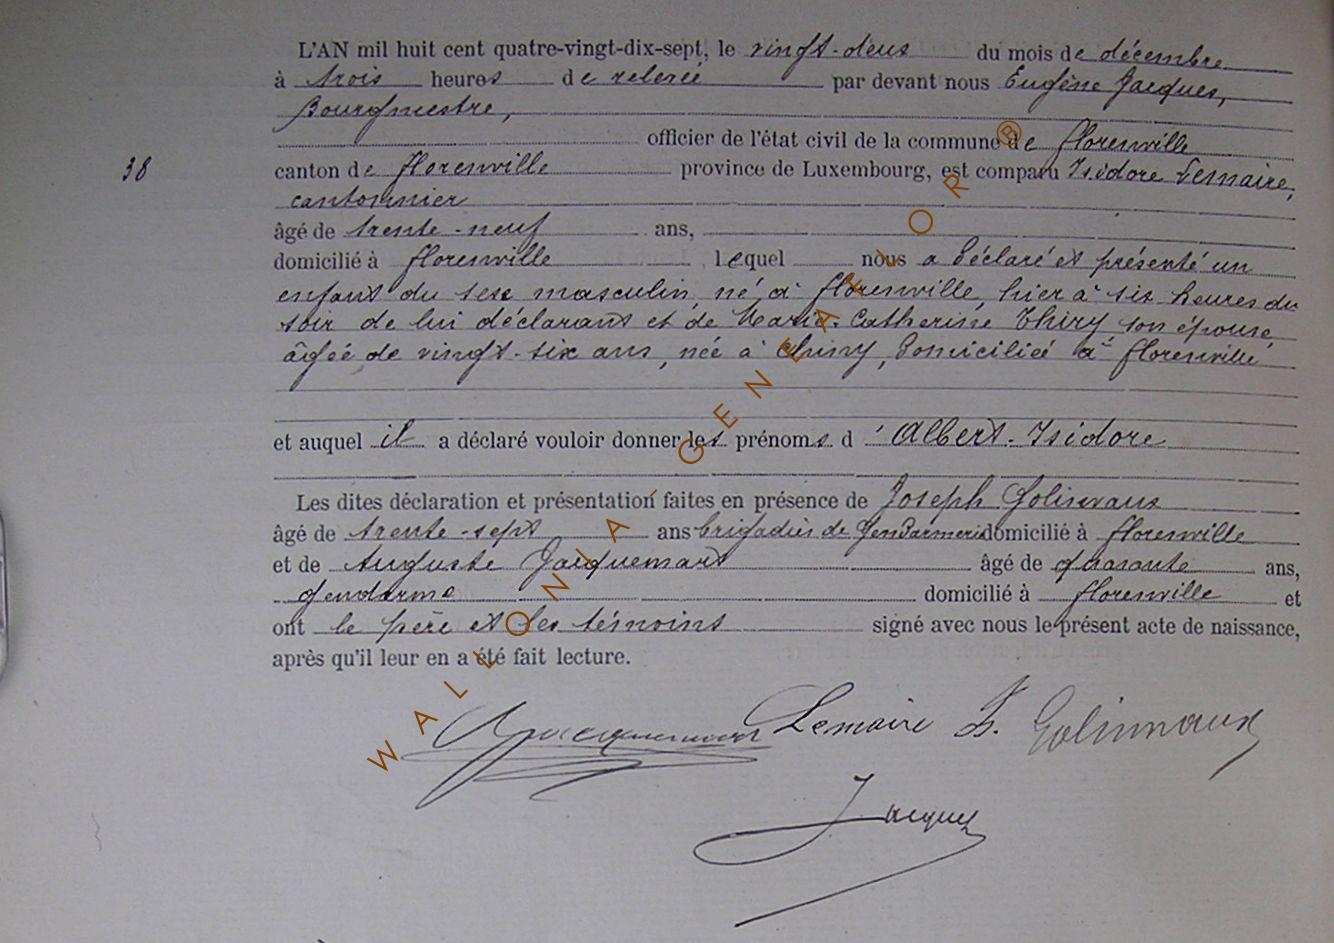 L'AN mil huit cent quatre-vingt-dix-sept, le vingt-deux du mois de décembre
à trois heures de relevée par devant nous Eugène Jacques,
Bourgmestre,
officier de l'état civil de la commune de Florenville
38 canton de Florenville province de Luxembourg, est comparu Isidore Lemaire,
cantonnier
âgé de trente-neuf ans,
domicilié à Florenville lequel nous a déclaré et présenté un
enfant du sexe masculin, né à Florenville, hier à six heures du
soir de lui déclarant et de Marie-Catherine Thiry son épouse,
âgée de vingt-six ans, née à Chiny, domiciliée à Florenville
et auquel il a déclaré vouloir donner les prénoms d'Albert-Isidore
Les dites déclaration et présentation faites en présence de Joseph Golinvaux
âgé de trente-sept ans brigadier de Gendarmerie domicilié à Florenville
et de Auguste Jacquemart âgé de quarante ans,
gendarme domicilié à Florenville et
ont le père et les témoins signé avec nous le présent acte de naissance,
après qu'il leur en a été fait lecture.
Lemaire J. Golinvaux
Jacques
WALLONIA GENEAFLOR ®